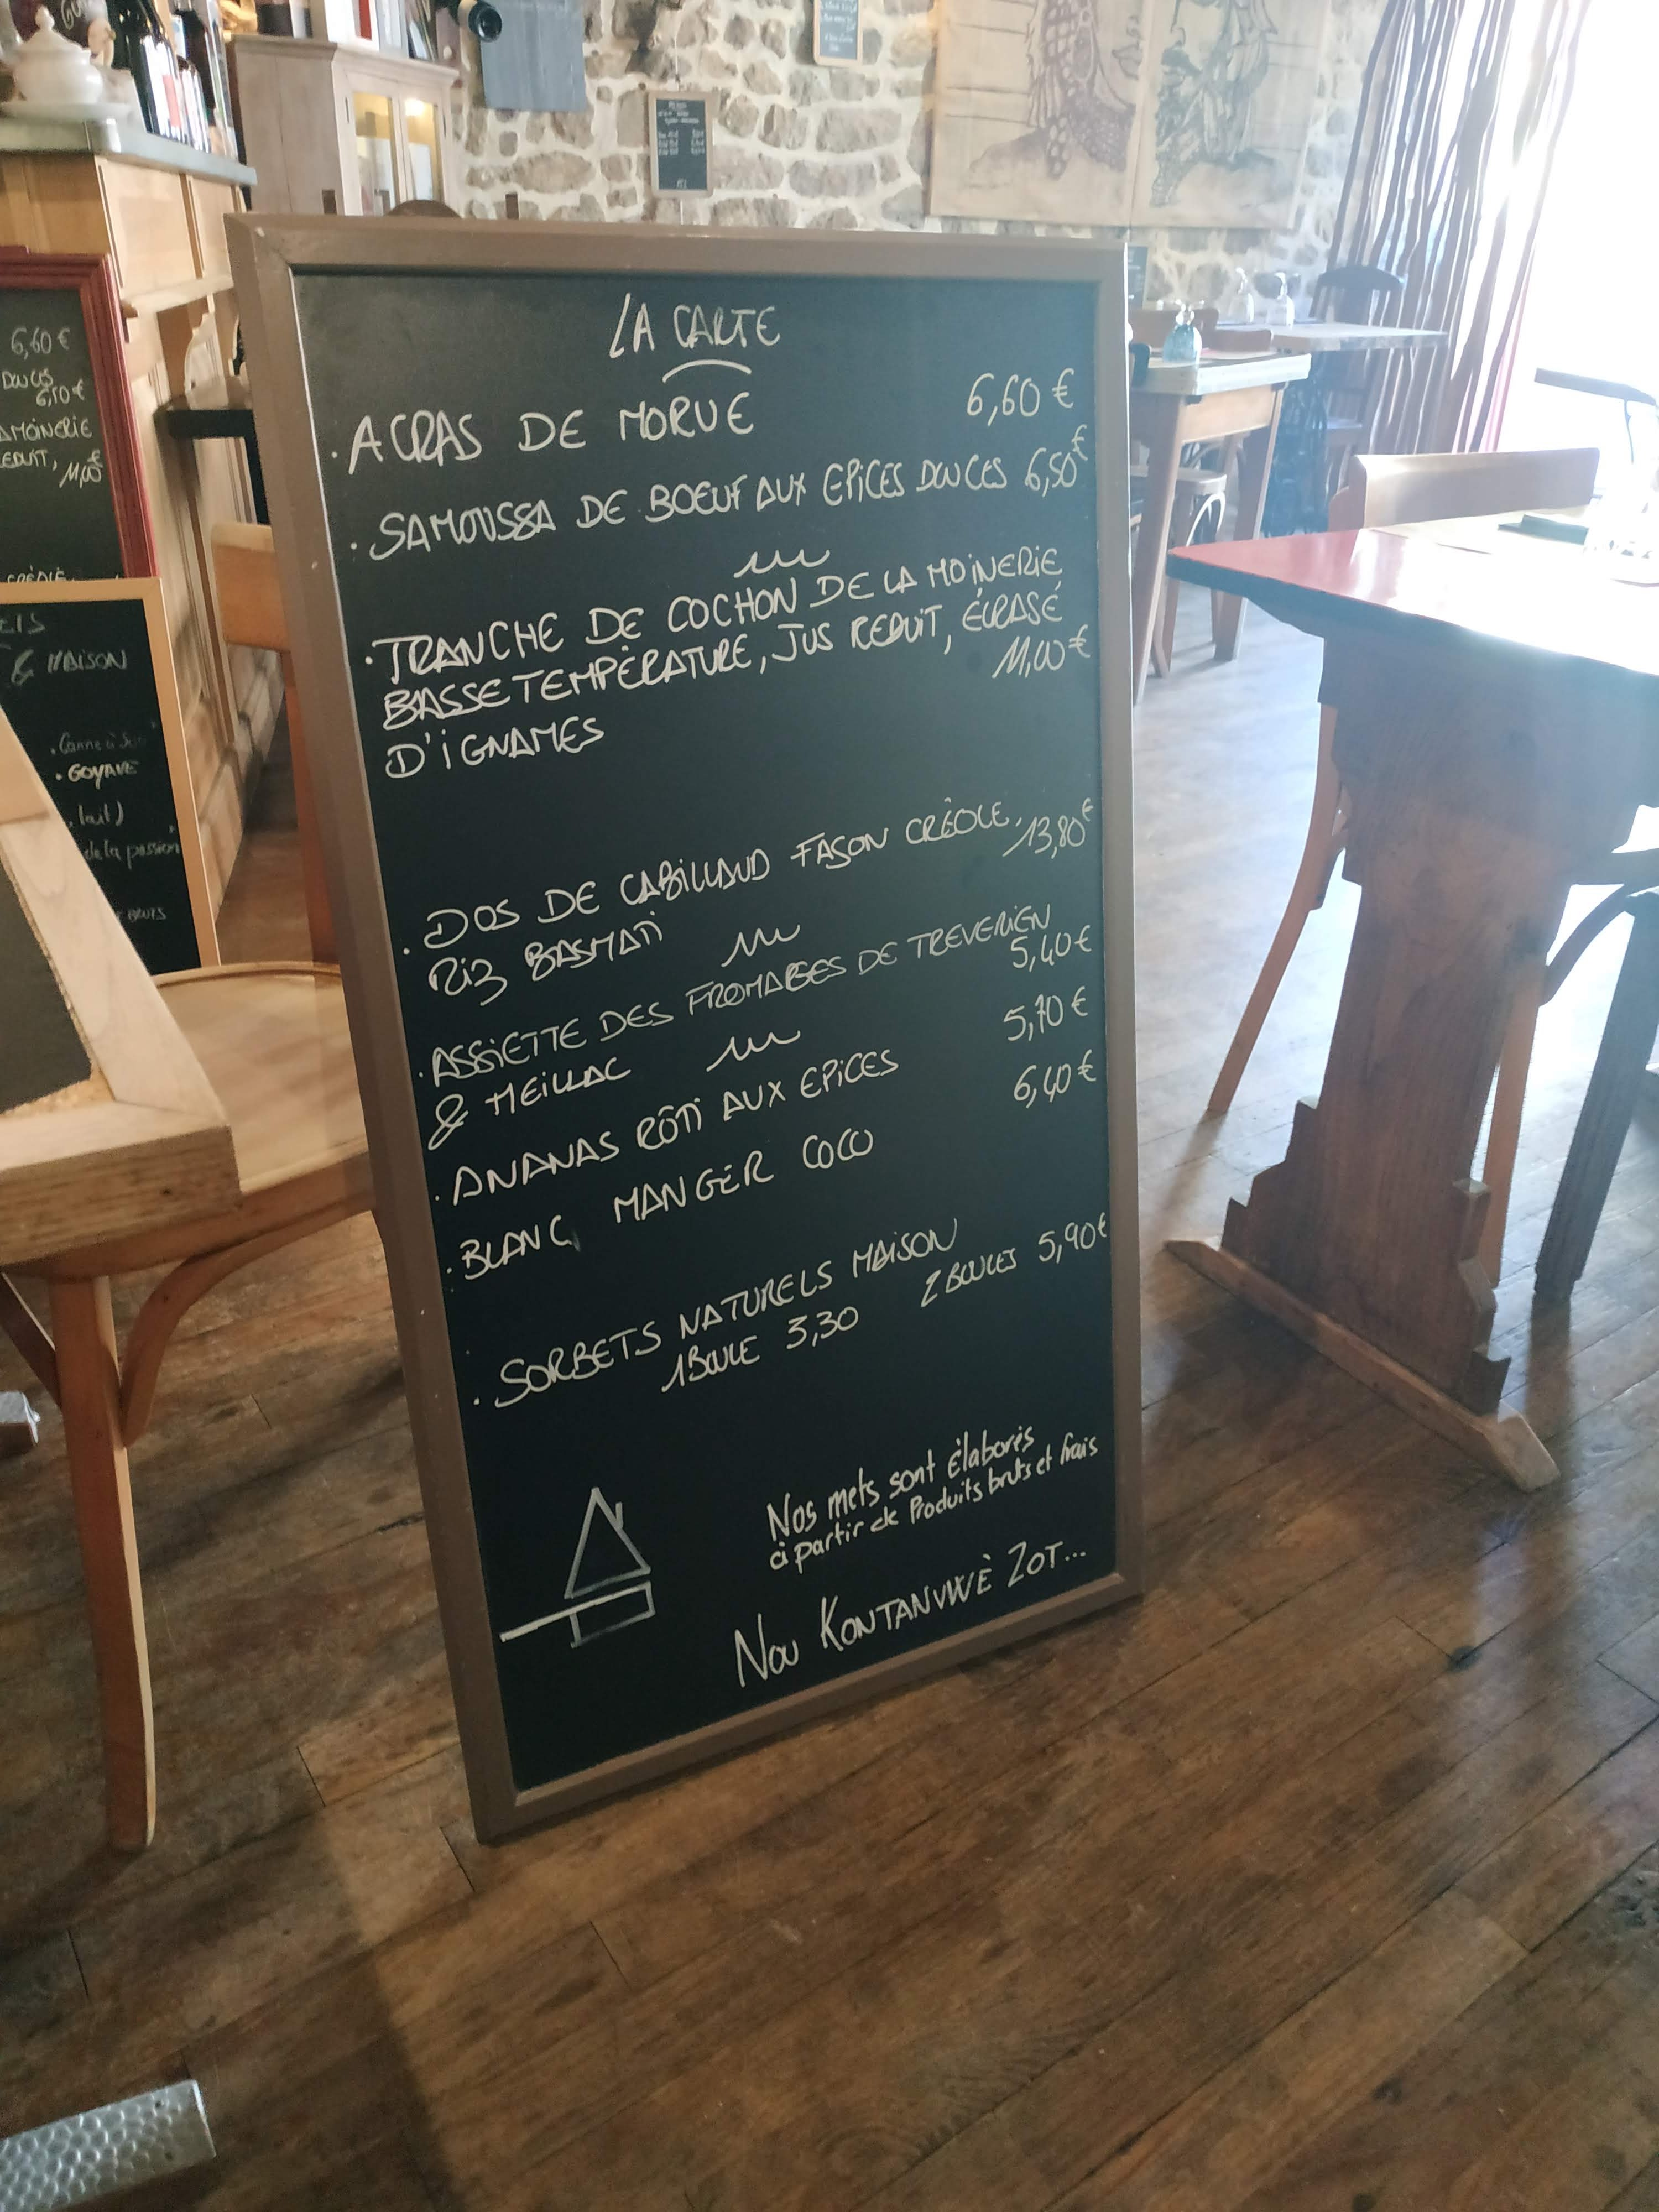 LA CARTE
. ACRAS DE MORUE 6,60 €
. SAMOUSSA DE BOEUF AUX EPICES DOUCES 6,50€
. TRANCHE DE COCHON DE LA MOINERIE
BASSE TEMPÉRATURE, JUS REDUIT, ÉCRASÉ
11,00 €
D'IGNAMES
. DOS DE CABILLAUD FAÇON CRÉOLE, 13,80€
RIZ BASMATI
. ASSIETTE DES FROMAGES DE TREVERIEN
& MEILLAC 5,40€
. ANANAS RÔTI AUX EPICES 5,70 €
. BLANC MANGER COCO 6,40 €
. SORBETS NATURELS MAISON
1 BOULE 3,30 2 BOULES 5,90€
Nos mets sont élaborés
à partir de Produits bruts et frais
NOU KONTANVWÈ ZOT...
6,60 €
DOUCES
6,50€
MOINERIE
11,00€
& MAISON
. GOYAVE
lait)
de la passion
BRUTS